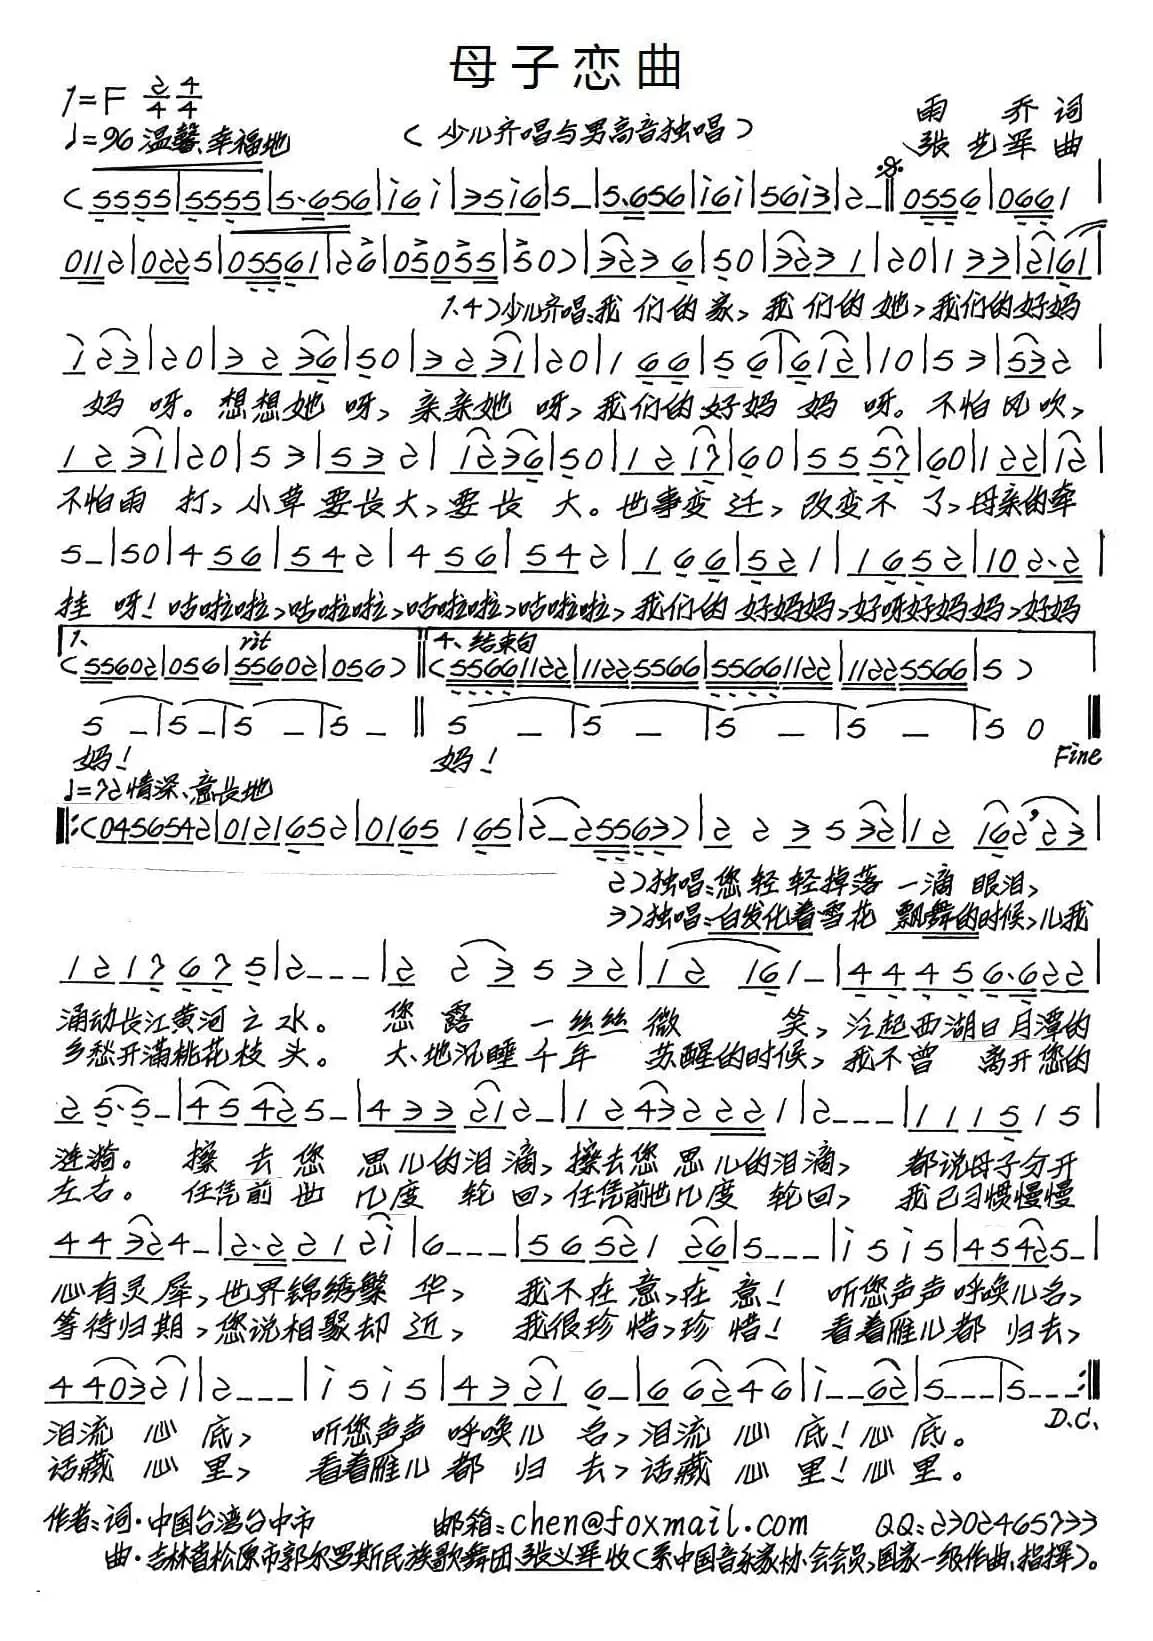 母子恋曲
1=F 2/4 4/4
雨 乔 词
♩=96 温馨、幸福地
(少儿齐唱与男高音独唱)
张艺军 曲
(5555|5555|5·656|i6i|35i6|5–|5·656|i6i|56i3|2–‖0556|0661|
0112|0225|05561|26|05055|50)|3236|50|3231|20|133|2161|
1.4)少儿齐唱:我们的家,我们的她,我们的好妈
123|20|3236|50|3231|20|166|56612|10|53|532|
妈呀。想想她呀,亲亲她呀,我们的好妈妈呀。不怕风吹,
1231|20|53|532|1236|50|1217|60|5557|60|122|12
不怕雨打,小草要长大,要长大。世事变迁,改变不了,母亲的牵
5–|50|456|542|456|542|166|521|1652|102·2|
挂呀!咕啦啦,咕啦啦,咕啦啦,咕啦啦,我们的好妈妈,好呀好妈妈,好妈
1. rit 4.结束句
(55602|056|55602|056)‖(55661122|11225566|55661122|11225566|5)
5–|5–|5–|5–‖5–|5–|5–|5–|50‖
妈! 妈! Fine
♩=72情深、意长地
‖:(0456542|0121652|0165 165|2–25563)|223532|12 162'23|
2)独唱:您轻轻掉落一滴眼泪,
3)独唱:白发化着雪花飘舞的时候,儿我
1217675|2–––|2 23532|12 161–|44456·622|
涌动长江黄河之水。您露一丝丝微笑,泛起西湖日月潭的
乡愁开满桃花枝头。大地沉睡千年苏醒的时候,我不曾离开您的
25·5–|45425–|433212–|12432221|2–––|111515|
涟漪。擦去您思儿的泪滴,擦去您思儿的泪滴,都说母子分开
左右。任凭前世几度轮回,任凭前世几度轮回,我已习惯慢慢
44324–|2·2212i|6–––|5652126|5–––|i5i5|45425–|
心有灵犀,世界锦绣繁华,我不在意,在意!听您声声呼唤儿名,
等待归期,您说相聚却近,我很珍惜,珍惜!看着雁儿都归去,
440321|2–––|i5i5|43216–|66246|i––62|5–––|5–––:‖
D.C.
泪流心底,听您声声呼唤儿名,泪流心底!心底。
话藏心里,看着雁儿都归去,话藏心里!心里。
作者:词·中国台湾台中市 邮箱:chen@foxmail.com QQ:2302465733
曲·吉林省松原市郭尔罗斯民族歌舞团、张义军收(系中国音乐家协会会员,国家一级作曲、指挥)。